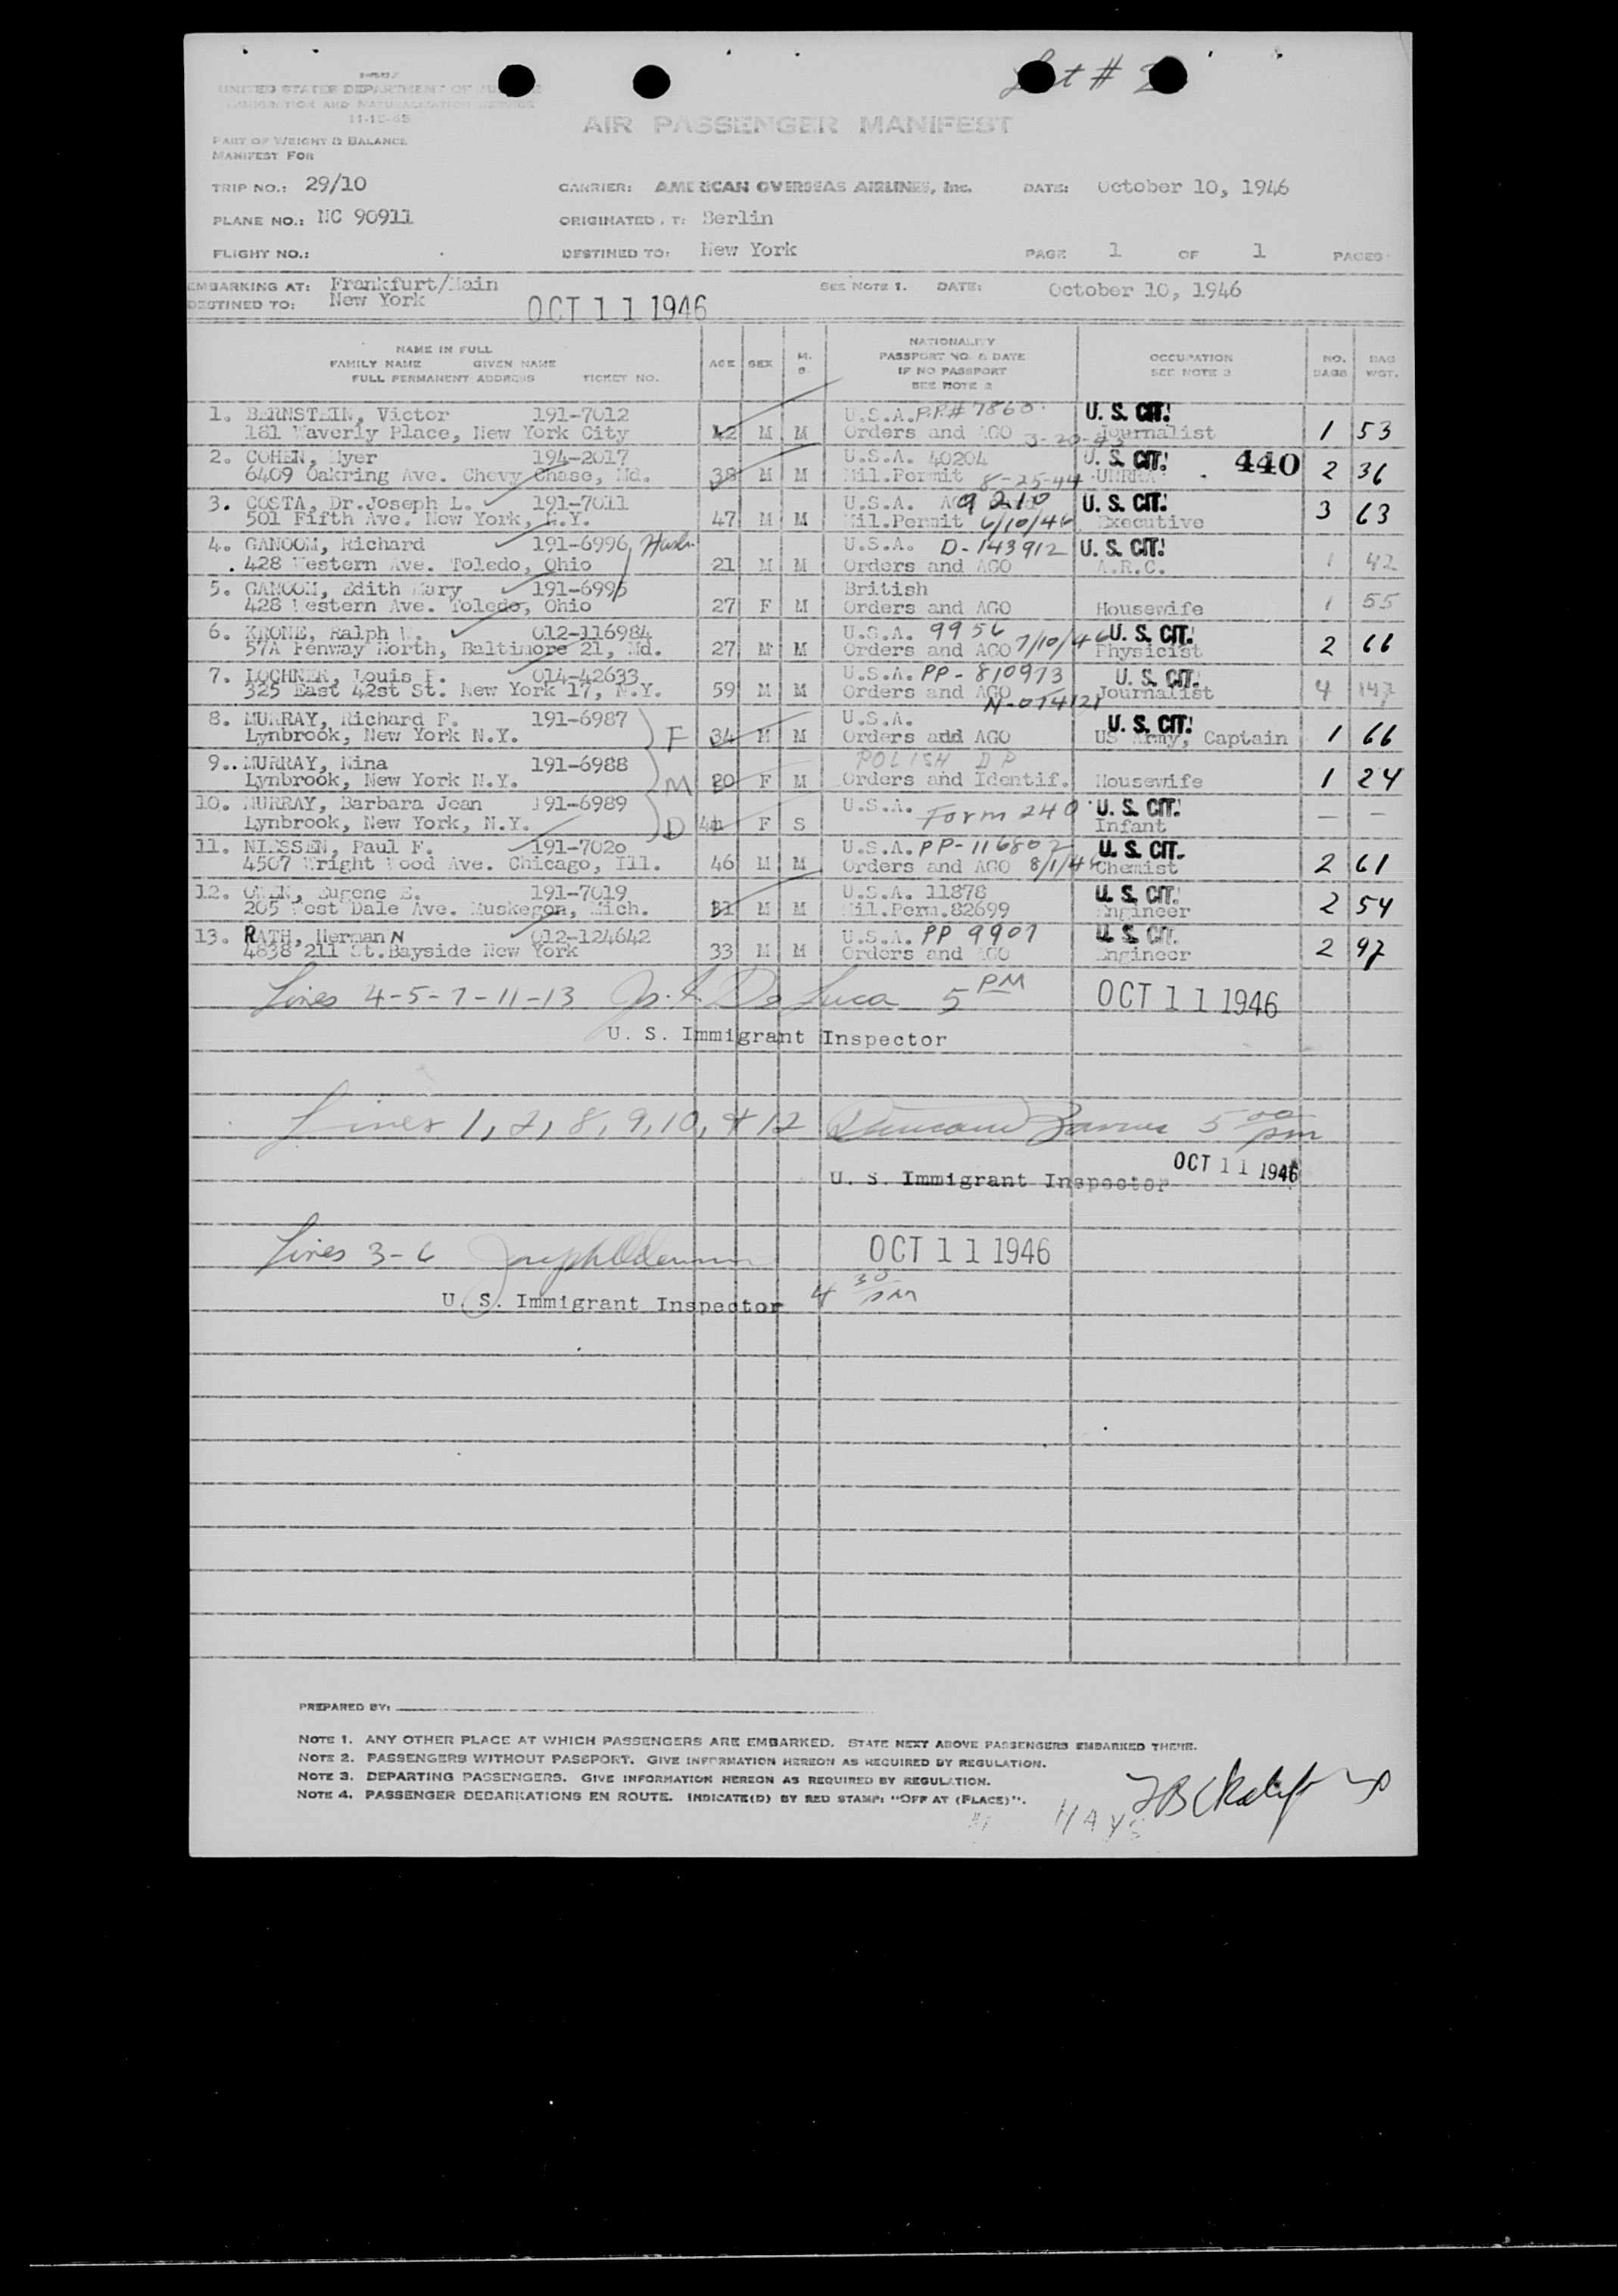 Lot # 2
UNITED STATES DEPARTMENT OF JUSTICE
IMMIGRATION AND NATURALIZATION SERVICE
11-15-45
AIR PASSENGER MANIFEST
PART OF WEIGHT & BALANCE
MANIFEST FOR
TRIP NO.: 29/10 CARRIER: AMERICAN OVERSEAS AIRLINES, Inc. DATE: October 10, 1946
PLANE NO.: NC 90911 ORIGINATED AT: Berlin
FLIGHT NO.: DESTINED TO: New York PAGE 1 OF 1 PAGES
EMBARKING AT: Frankfurt/Main SEE NOTE 1. DATE: October 10, 1946
DESTINED TO: New York OCT 11 1946
NAME IN FULL
FAMILY NAME GIVEN NAME
FULL PERMANENT ADDRESS TICKET NO. AGE SEX M. S. NATIONALITY PASSPORT NO. & DATE IF NO PASSPORT SEE NOTE 2 OCCUPATION SEE NOTE 3 NO. BAGS BAG WGT.
1. BERNSTEIN, Victor 191-7012 U.S.A. P.P.# 7860 U. S. CIT.
181 Waverly Place, New York City 42 M M Orders and AGO 3-20-45 Journalist 1 53
2. COHEN, Myer 194-2017 U.S.A. 40204 U. S. CIT. 440
6409 Oakring Ave. Chevy Chase, Md. 38 M M Mil.Permit 8-25-44 UNRRA 2 36
3. COSTA, Dr.Joseph L. 191-7011 U.S.A. 9210 U. S. CIT.
501 Fifth Ave. New York, N.Y. 47 M M Mil.Permit 6/10/46 Executive 3 63
4. GANOOM, Richard 191-6996 Husb. U.S.A. D-143912 U. S. CIT.
428 Western Ave. Toledo, Ohio 21 M M Orders and AGO A.R.C. 1 42
5. GANOOM, Edith Mary 191-6995 British
428 Western Ave. Toledo, Ohio 27 F M Orders and AGO Housewife 1 55
6. KRONE, Ralph W. 012-116984 U.S.A. 9956 U. S. CIT.
57A Fenway North, Baltimore 21, Md. 27 M M Orders and AGO 7/10/46 Physicist 2 66
7. LOCHNER, Louis P. 014-42633 U.S.A. PP-810973 U. S. CIT.
325 East 42st St. New York 17, N.Y. 59 M M Orders and AGO Journalist 4 147
N-074121
8. MURRAY, Richard F. 191-6987 U.S.A. U. S. CIT.
Lynbrook, New York N.Y. F 34 M M Orders add AGO US Army, Captain 1 66
9.. MURRAY, Nina 191-6988 POLISH DP
Lynbrook, New York N.Y. M 20 F M Orders and Identif. Housewife 1 24
10. MURRAY, Barbara Jean 191-6989 U.S.A. Form 240 U. S. CIT.
Lynbrook, New York, N.Y. D F S Infant — —
11. NIESSEN, Paul F. 191-7020 U.S.A. PP-116802 U. S. CIT.
4507 Wright Wood Ave. Chicago, Ill. 46 M M Orders and AGO 8/1/45 Chemist 2 61
12. OWEN, Eugene E. 191-7019 U.S.A. 11878 U. S. CIT.
205 West Dale Ave. Muskegon, Mich. 31 M M Mil.Perm.82699 Engineer 2 54
13. RATH, HermanN 012-124642 U.S.A. PP 9907 U. S. CIT.
4838 211 St.Bayside New York 33 M M Orders and AGO Engineer 2 97
Lines 4-5-7-11-13 Jos. A. De Luca 5 PM OCT 11 1946
U. S. Immigrant Inspector
Lines 1, 2, 8, 9, 10, & 12 5 00 pm
U. S. Immigrant Inspector OCT 11 1946
Lines 3-6 OCT 11 1946
U. S. Immigrant Inspector 4 30 PM
PREPARED BY:
NOTE 1. ANY OTHER PLACE AT WHICH PASSENGERS ARE EMBARKED. STATE NEXT ABOVE PASSENGERS EMBARKED THERE.
NOTE 2. PASSENGERS WITHOUT PASSPORT. GIVE INFORMATION HEREON AS REQUIRED BY REGULATION.
NOTE 3. DEPARTING PASSENGERS. GIVE INFORMATION HEREON AS REQUIRED BY REGULATION.
NOTE 4. PASSENGER DEBARKATIONS EN ROUTE. INDICATE(D) BY RED STAMP: "OFF AT (PLACE)".
HAYS